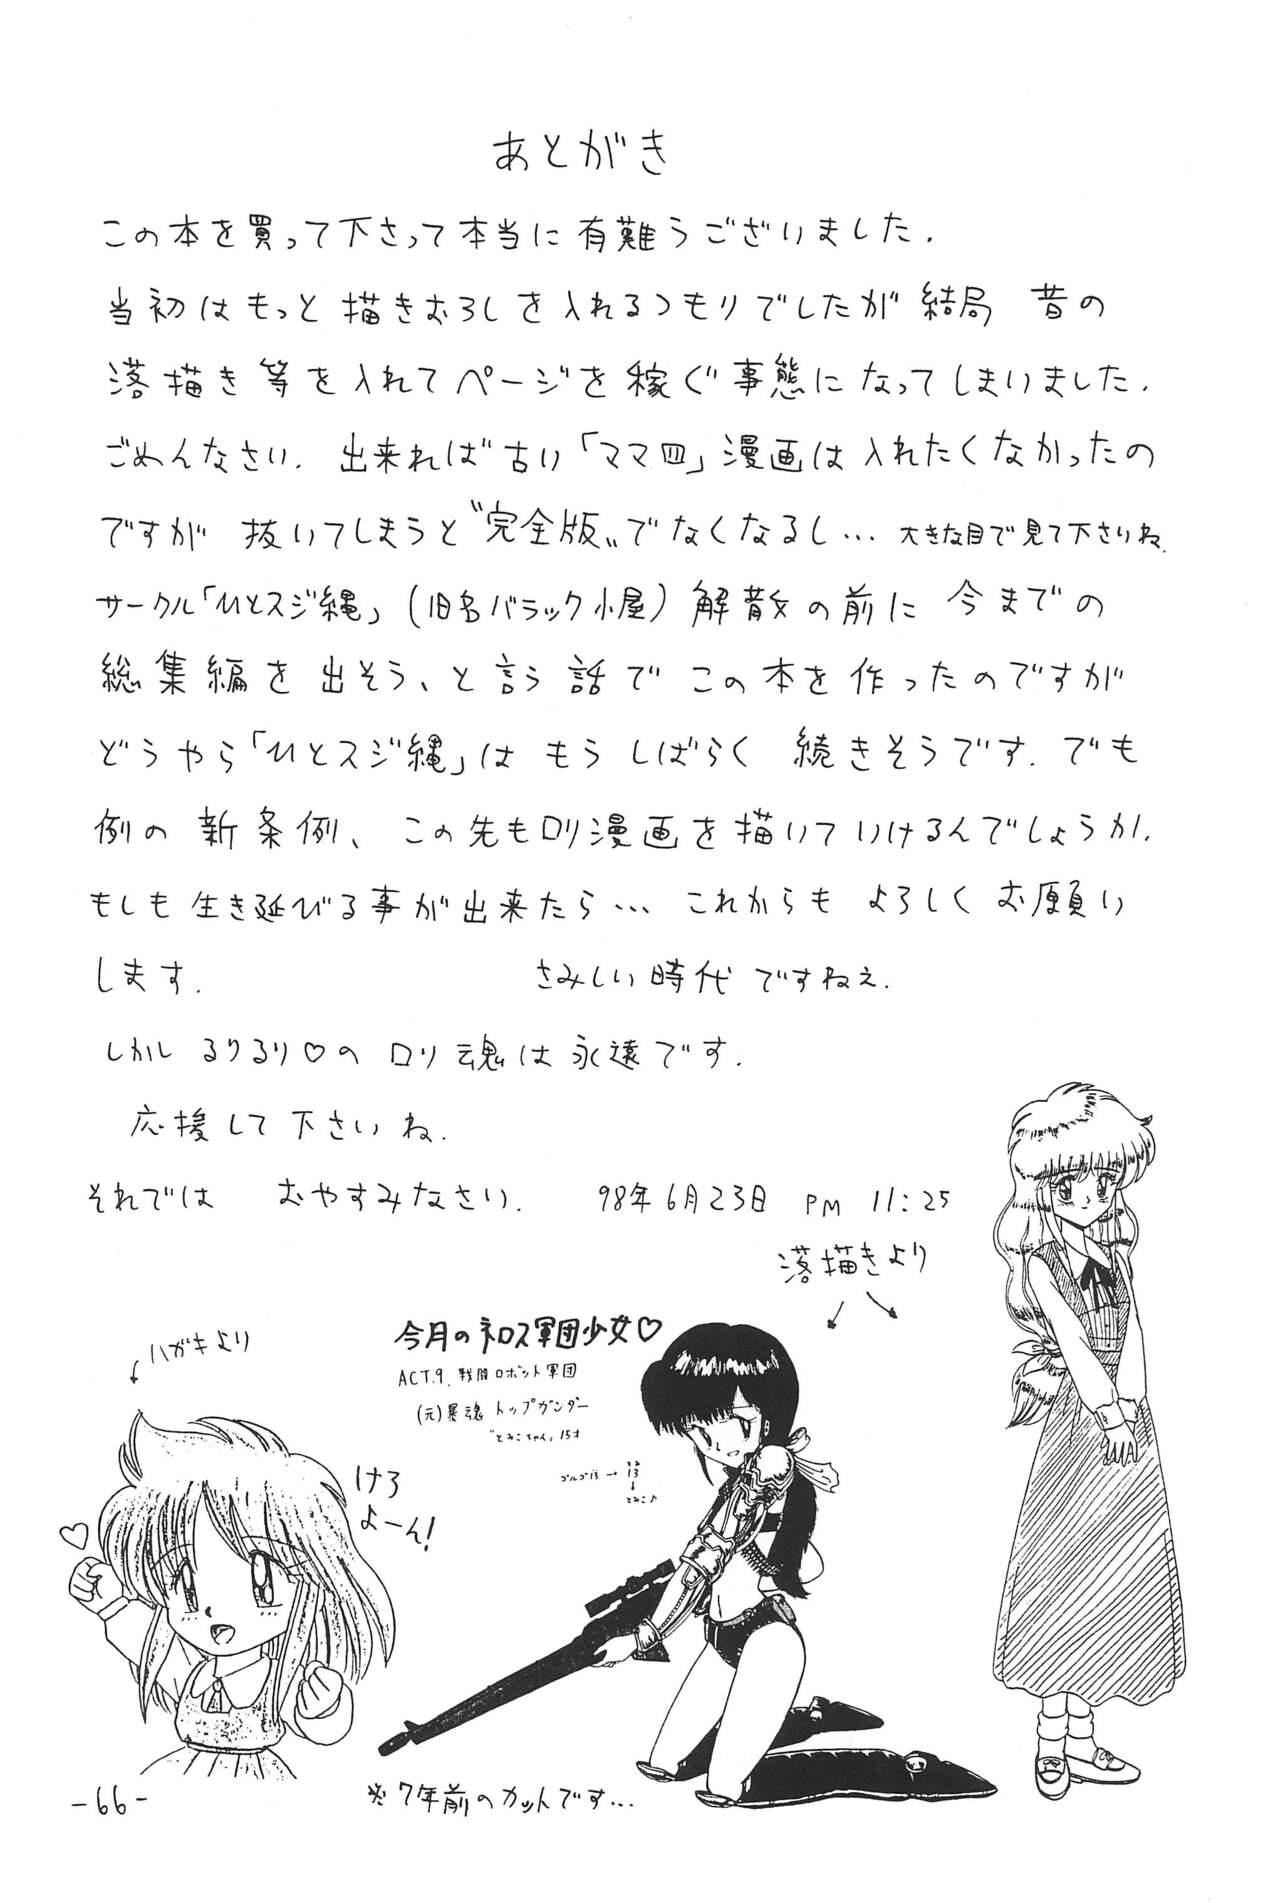 あとがき
この本を買って下さって本当に有難うございました.
当初はもっと描きおろしを入れるつもりでしたが結局 昔の
落描き等を入れてページを稼ぐ事態になってしまいました.
ごめんなさい. 出来れば古い「ママ皿」漫画は入れたくなかったの
ですが 抜いてしまうと〝完全版〟でなくなるし… 大きな目で見て下さいね.
サークル「ひとスジ縄」(旧名バラック小屋) 解散の前に 今までの
総集編を出そう、と言う話で この本を作ったのですが
どうやら「ひとスジ縄」は もう しばらく 続きそうです. でも
例の新条例、この先もロリ漫画を描いていけるんでしょうか.
もしも生き延びる事が出来たら… これからも よろしく お願い
します.
さみしい時代ですねぇ.
しかし るりるり♡の ロリ魂は永遠です.
応援して下さいね.
それでは おやすみなさい. 98年6月23日 PM 11:25
落描きより
ハガキより
今月のネロス軍団少女♡
ACT.9. 戦闘ロボット軍団
(元)暴魂 トップガンダー
"とみこちゃん" 15才
ゴルゴ13 → 13
↓
とみこ♪
けろ
よーん!
※7年前のカットです…
-66-